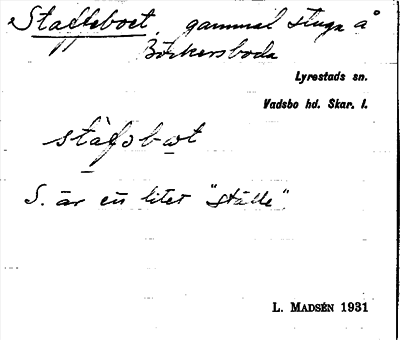 Staffsboet, gammal stuga å
Börkersboda
Lyrestads sn.
Vadsbo hd. Skar. l.
S. är en litet "ställe"
L. MADSÉN 1931